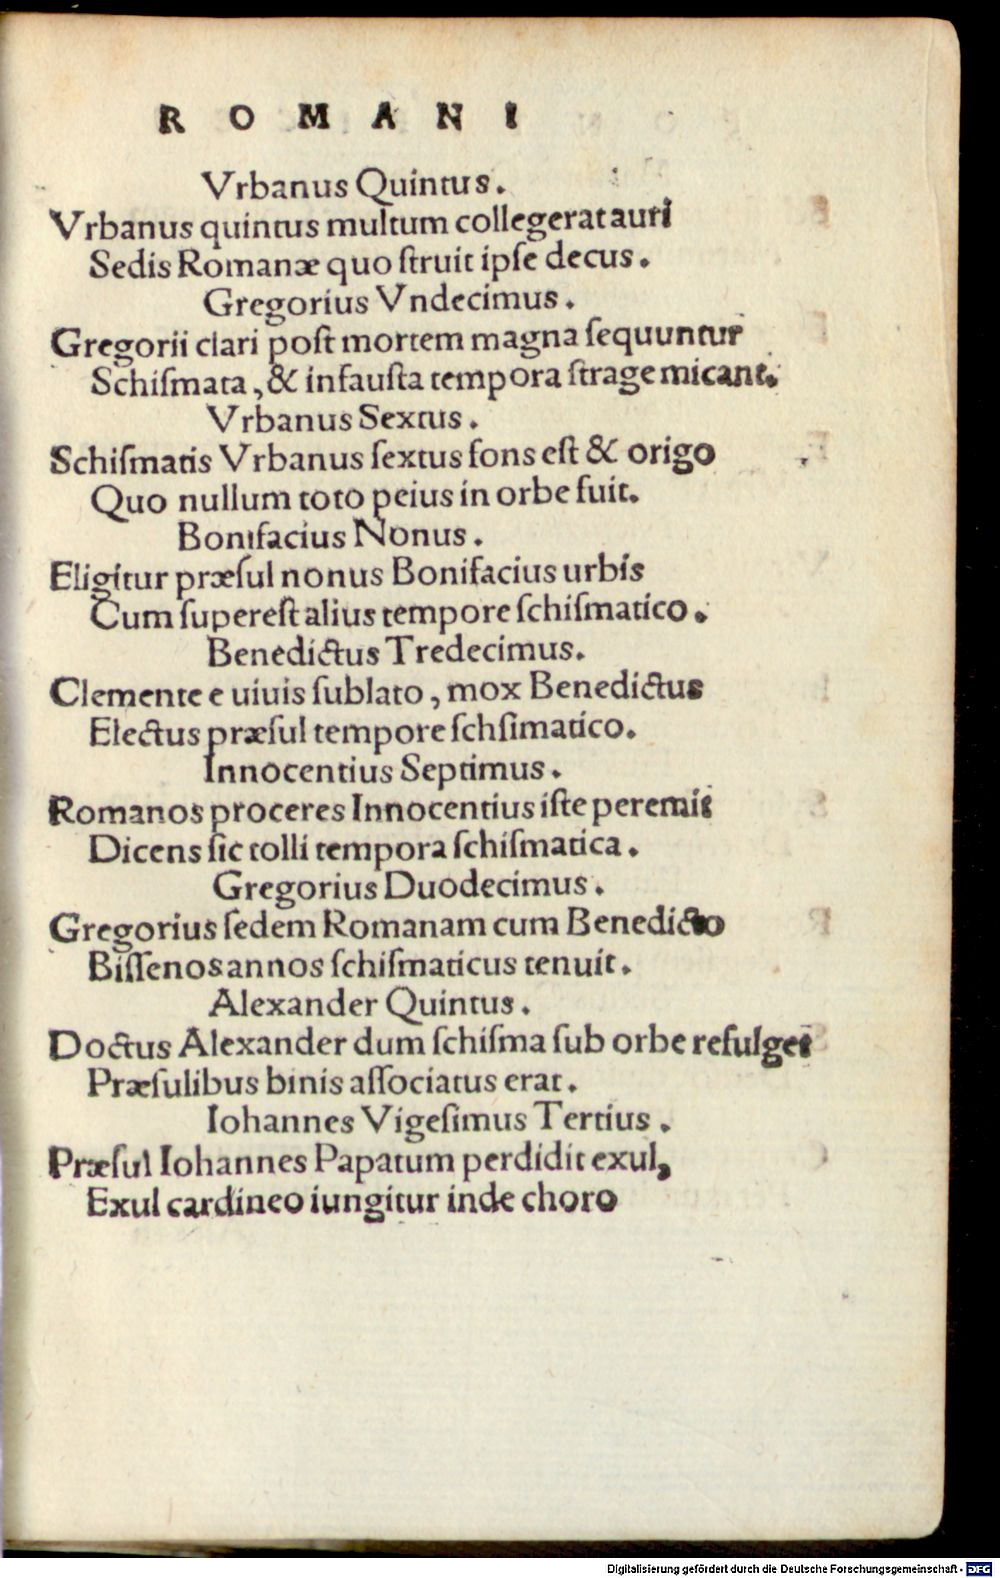 ROMANI
Vrbanus Quintus.
Vrbanus quintus multum collegerat auri
Sedis Romanæ quo ſtruit ipſe decus.
Gregorius Vndecimus.
Gregorii clari poſt mortem magna ſequuntur
Schiſmata, & infauſta tempora ſtrage micant.
Vrbanus Sextus.
Schiſmatis Vrbanus ſextus fons eſt & origo
Quo nullum toto peius in orbe fuit.
Bonifacius Nonus.
Eligitur præſul nonus Bonifacius urbis
Cum ſupereſt alius tempore ſchiſmatico.
Benedictus Tredecimus.
Clemente e uiuis ſublato, mox Benedictus
Electus præſul tempore ſchſimatico.
Innocentius Septimus.
Romanos proceres Innocentius iſte peremit
Dicens ſic tolli tempora ſchiſmatica.
Gregorius Duodecimus.
Gregorius ſedem Romanam cum Benedicto
Biſſenos annos ſchiſmaticus tenuit.
Alexander Quintus.
Doctus Alexander dum ſchiſma ſub orbe refulget
Præſulibus binis aſſociatus erat.
Iohannes Vigeſimus Tertius.
Præſul Iohannes Papatum perdidit exul,
Exul cardineo iungitur inde choro
Digitalisierung gefördert durch die Deutsche Forschungsgemeinschaft - DFG